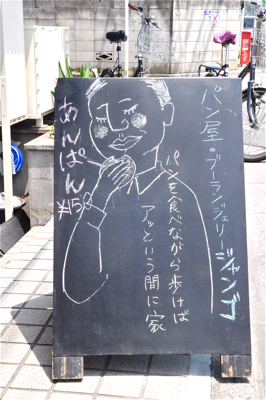 パン屋・ブーランジェリージャンゴ
パンを食べながら歩けば
アッという間に家
あんぱん
¥158